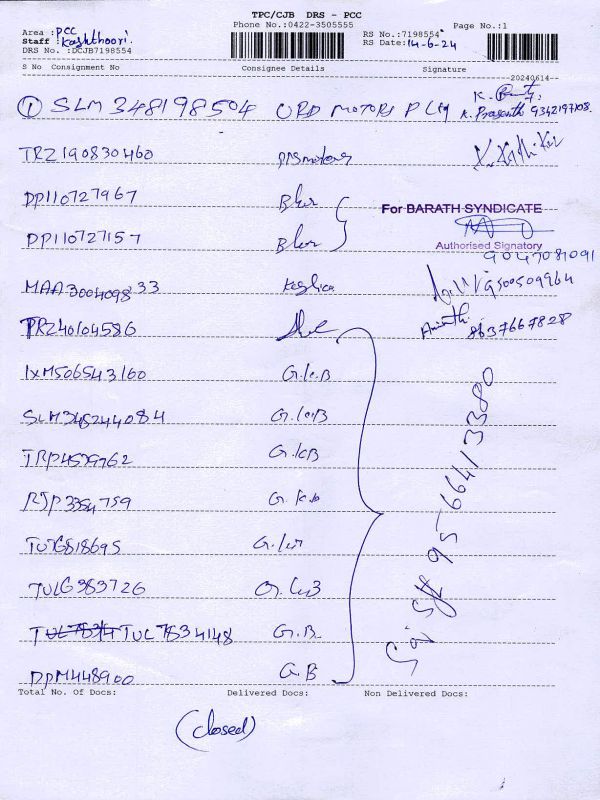 TPC/CJB DRS - PCC
Phone No.:0422-3505555
Page No.:1
Area : PCC
Staff : Kasthoori.
DRS No. :DCJB7198554
RS No.:7198554
RS Date: 14-6-24
S No Consignment No Consignee Details Signature
20240614
① SLM 348198504 URD MOTORS P Ltd K. Prasanth 9342197108.
TRZ190830460 motors
DP110727967 Blur
For BARATH SYNDICATE
DP110727157 Blur
Authorised Signatory
9047081091
MAA3004098 33 9500509964
TRZ40104586 8637667828
IXM506543160 G.K.B
SLM345244084 G.K.B
TRP4579762 G.K.B
RJP3354759 G.K.B
TUTG818695
TULG383726 G.K.B
TUL7834148 G.B
DPM448900 G.B
95-66413380
Total No. Of Docs: Delivered Docs: Non Delivered Docs:
(closed)